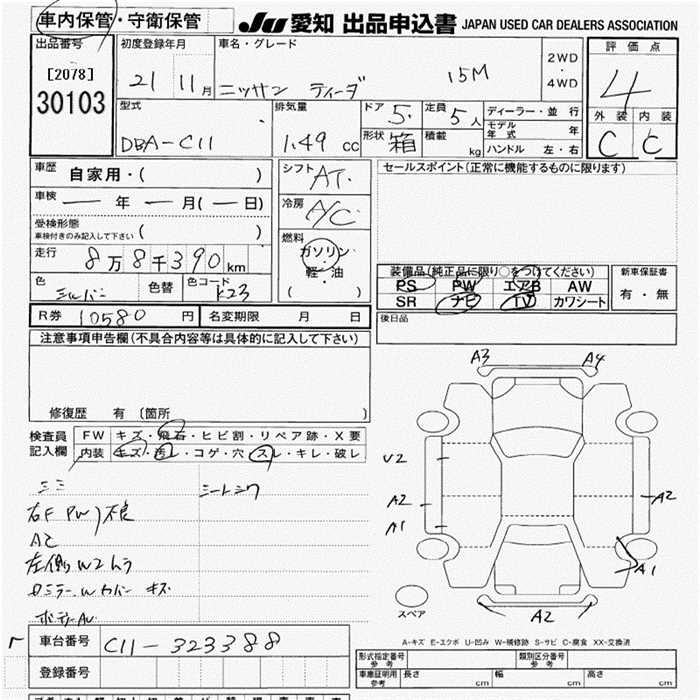 車内保管・守衛保管
JU 愛知 出品申込書 JAPAN USED CAR DEALERS ASSOCIATION
出品番号 初度登録年月 車名・グレード 2WD・4WD 評価点
[2078] 21 11月 ニッサン ティーダ 15M 4
30103
型式 排気量 ドア 5 定員 5人 ディーラー・並行 外装 内装
DBA-C11 1.49 cc 形状 箱 積載 kg モデル年式 年 C C
ハンドル 左・右
車歴 自家用・( ) シフト AT セールスポイント(正常に機能するものに限ります)
車検 ― 年 ― 月(― 日) 冷房 A/C
受検形態
車検付きのみ記入して下さい( )
燃料 ガソリン・軽・油 ( )
走行 8万8千390km
装備品(純正品に限り○をつけてください) 新車保証書
PS PW エアB AW 有・無
SR ナビ TV カワシート
色 シルバー 色替 色コード K23
後日品
R券 10580円 名変期限 月 日
注意事項申告欄(不具合内容等は具体的に記入して下さい)
修復歴 有 〔箇所 〕
検査員記入欄 FW キズ・飛石・ヒビ割・リペア跡・X要
内装 キズ・汚レ・コゲ・穴・スレ・キレ・破レ
シートシワ
右F PW 不良
A2
左側 W2ムラ
ロミラーWカバー キズ
A3 A4
U2
A2 A2
A1
A1
スペア A2
A-キズ E-エクボ U-凹み W-補修跡 S-サビ C-腐食 XX-交換済
車台番号 C11-323388
登録番号
形式指定番号 参考 類別区分番号 参考
車庫証明用 参考 長さ cm 幅 cm 高さ cm